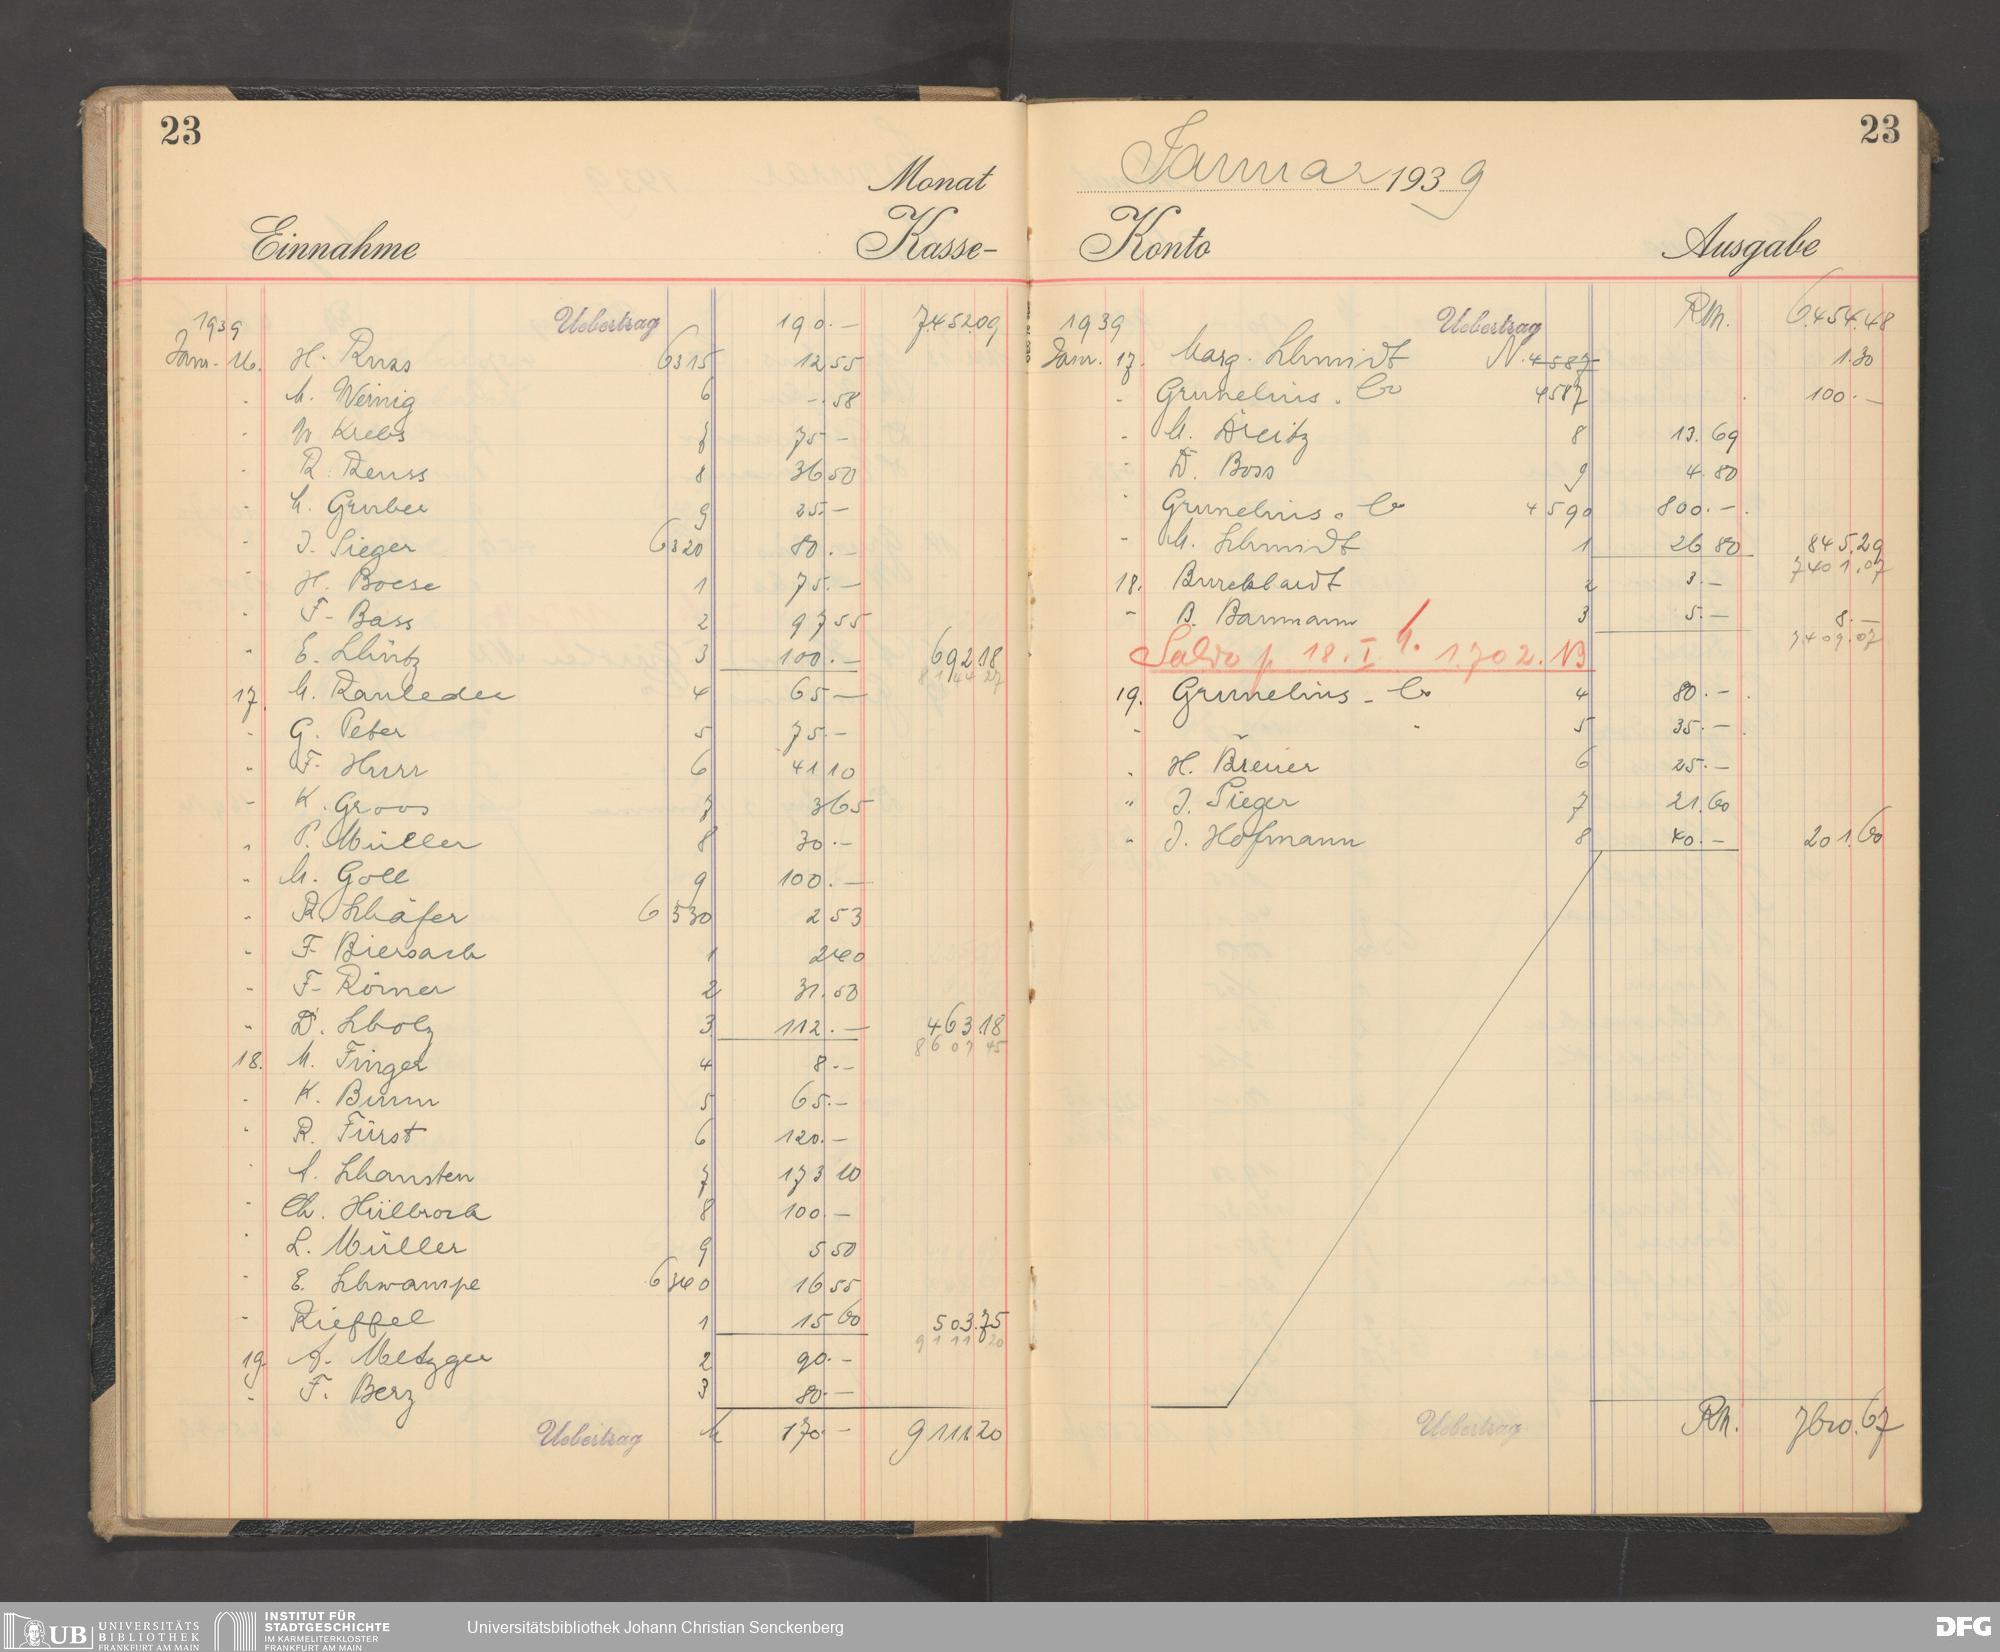 23
Monat
Einnahme Kasse-
1939 Uebertrag 190.— 7.452.09
Jan. 16. H. Russ 6315 12 55
" M. Weinig 6 —.58
" W. Krebs 7 75 —
" R. Reuss 8 36 50
" M. Gruber 9 25.—
" J. Sieger 6320 80.—
" H. Boese 1 75.—
" F. Bass 2 97 55
" E. 3 100.— 692 18
8144 27
17. M. Rauleder 4 65 —
" G. Peter 5 75.—
" F. Hurr 6 41 10
" K. Groos 7 3 65
" P. Müller 8 30.—
" M. Goll 9 100.—
" R. Schäfer 6330 2 53
" F. Biersack 1 2 40
" F. Römer 2 31.50
" D. Scholz 3 112.— 463 18
8607 45
18. M. Finger 4 8.—
" K. Bumm 5 65.—
" R. Fürst 6 120.—
" A. Schansten 7 173 10
" Ch. Hülbrock 8 100.—
" L. Müller 9 5 50
" E. Schwampe 6340 16 55
" Rieffel 1 15 60 503.75
9111 20
19. A. Metzger 2 90.—
" F. Berz 3 80.—
Uebertrag M 170.— 9111.20
23
Januar 1939
Konto Ausgabe
1939 Uebertrag RM. 6.454.48
Jan. 17. Marg. Schmidt N. 4587 1.30
" Grunelius & Co 4587 100.—
" M. Dreitz 8 13.69
" D. Boss 9 4.80
" Grunelius & Co 4590 800.—
" M. Schmidt 1 26 80 845.29
7401.07
18. Burckhardt 2 3.—
" B. Baumann 3 5.— 8.—
7409.07
Saldo p. 18. I. M. 1.702.13
19. Grunelius & Co 4 80.—
" " 5 35.—
" H. Breuer 6 25.—
" J. Sieger 7 21.60
" J. Hofmann 8 40.— 201.60
Uebertrag RM. 7610.67
UB UNIVERSITÄTS
BIBLIOTHEK
FRANKFURT AM MAIN
INSTITUT FÜR
STADTGESCHICHTE
IM KARMELITERKLOSTER
FRANKFURT AM MAIN
Universitätsbibliothek Johann Christian Senckenberg
DFG